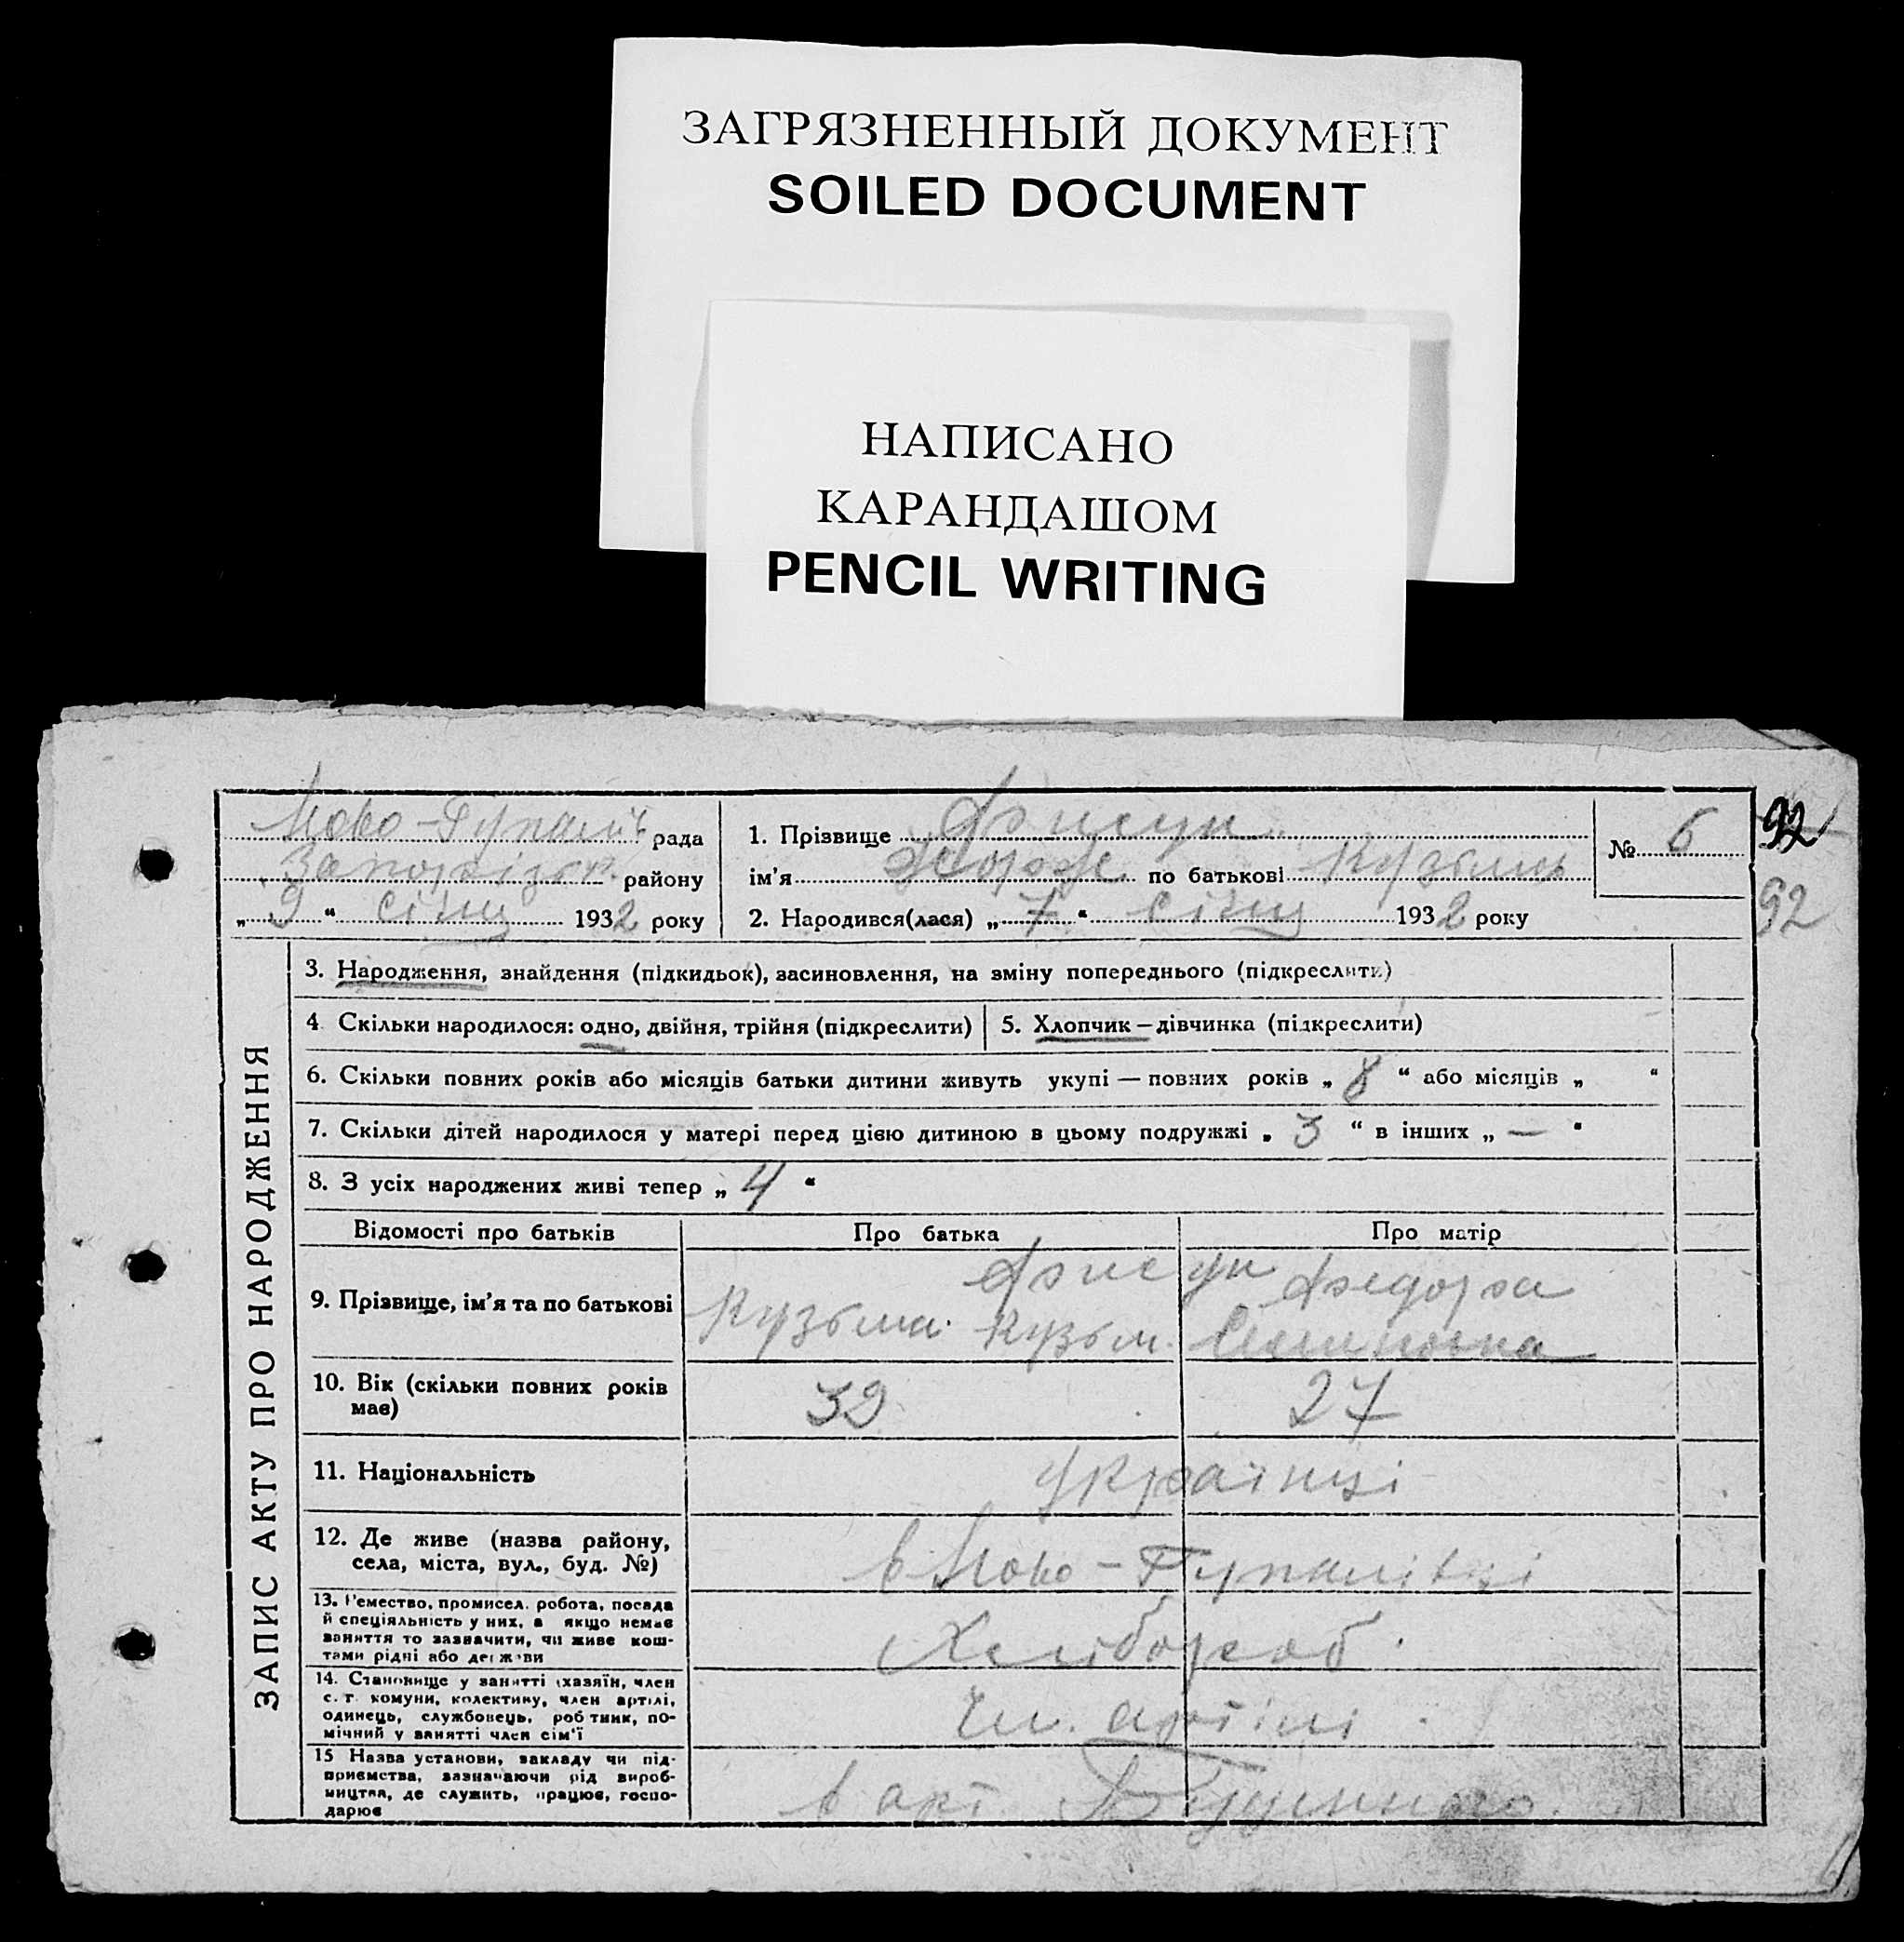 ЗАГРЯЗНЕННЫЙ ДОКУМЕНТ
SOILED DOCUMENT
НАПИСАНО
КАРАНДАШОМ
PENCIL WRITING
Ново-Гупалів рада
Запорізьк. району
„ 9 “ січня 1932 року
1. Прізвище
ім’я по батькові Кузьмич
2. Народився(лася) „ 7 “ січня 1932 року
№ 6
92
92
ЗАПИС АКТУ ПРО НАРОДЖЕННЯ
3. Народження, знайдення (підкидьок), засиновлення, на зміну попереднього (підкреслити)
4. Скільки народилося: одно, двійня, трійня (підкреслити)
5. Хлопчик — дівчинка (підкреслити)
6. Скільки повних років або місяців батьки дитини живуть укупі — повних років „ 8 “ або місяців „ “
7. Скільки дітей народилося у матері перед цією дитиною в цьому подружжі „ 3 “ в інших „ — “
8. З усіх народжених живі тепер „ 4 “
Відомості про батьків Про батька Про матір
9. Прізвище, ім’я та по батькові
Кузьма Кузьм.
10. Вік (скільки повних років має) 39 27
11. Національність українці
12. Де живе (назва району, села, міста, вул., буд. №) в Ново-Гупалівці
13. Ремество, промисел, робота, посада й спеціяльність у них, а якщо немає заняття то зазначити, чи живе коштами рідні або держави
Хлібороб.
14. Становище у занятті (хазяїн, член с.-г. комуни, колективу, член артілі, одинець, службовець, робітник, помічний у занятті член сім’ї
Чл. артілі
15 Назва установи, закладу чи підприємства, зазначаючи рід виробництва, де служить, працює, господарює
в арт. Будьоного